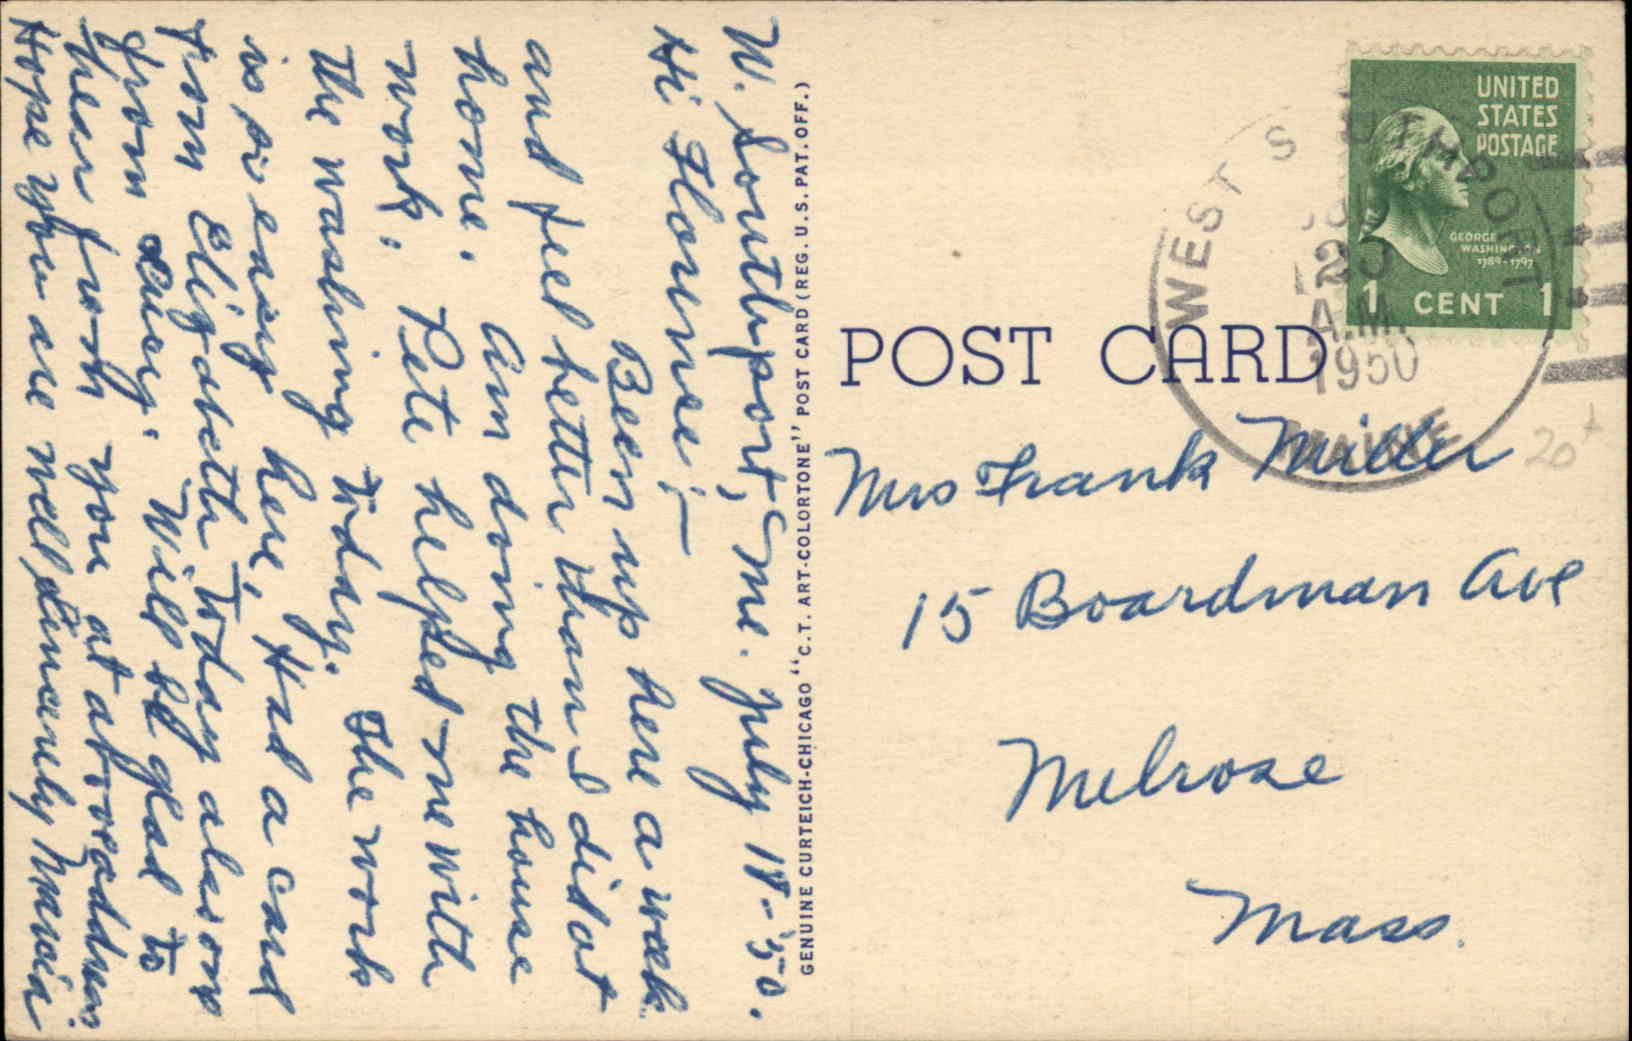 W. Southport, Me. July 18-'50.
Hi Florence:—
Been up here a week
and feel better than I did at
home. Am doing the house
work. Pete helped me with
the washing today. The work
is so easy here, Had a card
from Elizabeth today also one
from. Will be glad to
hear from you at above address
Hope you are well Sincerely
GENUINE CURTEICH-CHICAGO "C.T. ART-COLORTONE" POST CARD (REG. U.S. PAT. OFF.)
POST CARD
WEST SOUTHPORT
20
A.M.
1950
MAINE
UNITED
STATES
POSTAGE
GEORGE
WASHINGTON
1789-1797
1 CENT 1
20
Mrs Frank Miller
15 Boardman Ave
Melrose
Mass.